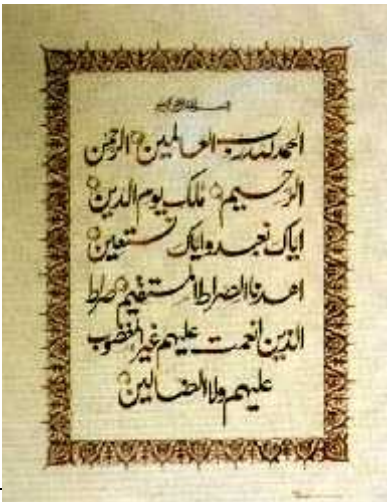 بسم الله الرحمن الرحيم
الحمد لله رب العالمين الرحمن
الرحيم ملك يوم الدين
اياك نعبد واياك نستعين
اهدنا الصراط المستقيم صراط
الذين انعمت عليهم غير المغضوب
عليهم ولا الضالين